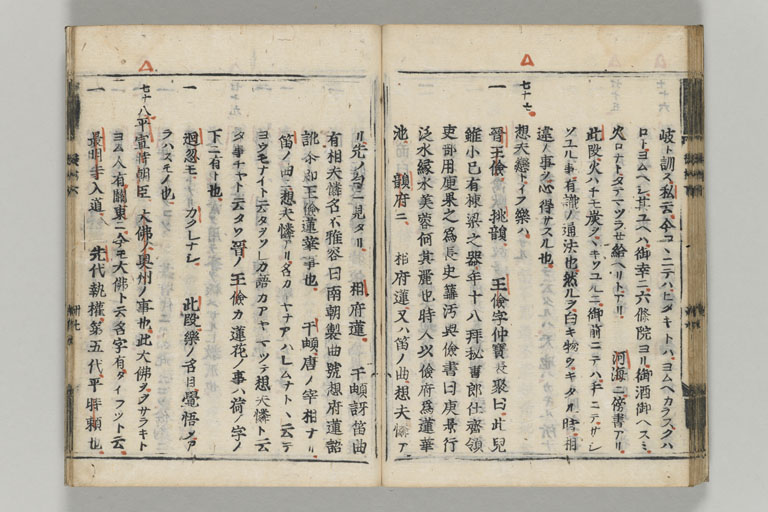 岐ト訓ス私云今コヽニテハヒタキトハヨムヘカラスクハ
ロトヨムヘシ其ユヘハ御幸ニ六條院ヨリ御酒御ヘスミ
火ロナトタテマツラせ給ヘリトアリ 河海ニ傍書アリ
此段火ハチモ炭ヲヽキソユルニ御前ニテハチニテサシ
ソユル事有識ノ通法也然ルヲ白キ物ヲキタル時相
違ノ事ヲ心得サスル也
七十七
想夫戀トイフ樂ハ
一 晉王儉 姚韻 王儉字仲寶袁粲曰此兒
雖小已有棟梁之器年十八拜秘書郎仕齋領
吏部用庾杲之爲長史蕭沔與儉書曰庾景行
泛水緑水芙蓉何其麗也時人以儉府爲蓮華
池 韻府ニ 相府蓮又ハ笛ノ曲想夫憐ア
ル先ノ 一見タリ 相府蓮 于頔訝笛曲
有相夫憐名不雅客曰南朝製曲號想府蓮詔
訛今即王儉蓮華事也 于頔唐ノ宰相ナリ
笛ノ曲ニ想夫憐アリ名カヤナアハレムナトヽ云テ
ヨウモナイト云タヲソレカ語カアヤマツテ想夫憐ト云
タ事チャト云タソ晉ノ王儉カ蓮花ノ事ハ荷ノ字ノ
下ニ有ト也
一 廻忽モ カクレナシ 此段樂ノ名目覺悟シア
ラハスモノ也
七十八 平宣時朝臣 大佛ノ奥州ノ事也此大佛ヲヲサラキト
ヨム人有關東ニ今モ大佛ト云名字有タイフツト云
一 最明寺入道 先代執權第五代平時頼也